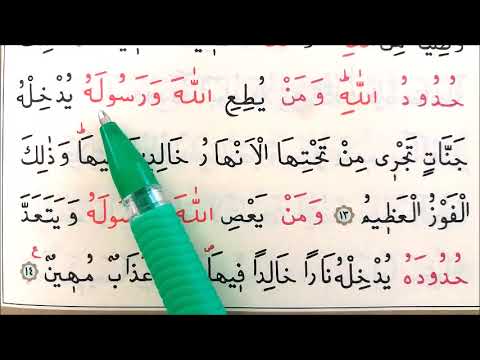 حُدُودُ اللّٰهِ وَمَنْ يُطِعِ اللّٰهَ وَرَسُولَهُ يُدْخِلْهُ
جَنَّاتٍ تَجْرٖي مِنْ تَحْتِهَا الْاَنْهَارُ خَالِدٖينَ فٖيهَا وَذٰلِكَ
الْفَوْزُ الْعَظٖيمُ ﴿١٣﴾ وَمَنْ يَعْصِ اللّٰهَ وَرَسُولَهُ وَيَتَعَدَّ
حُدُودَهُ يُدْخِلْهُ نَارًا خَالِدًا فٖيهَا عَذَابٌ مُهٖينٌ ﴿١٤﴾ ع